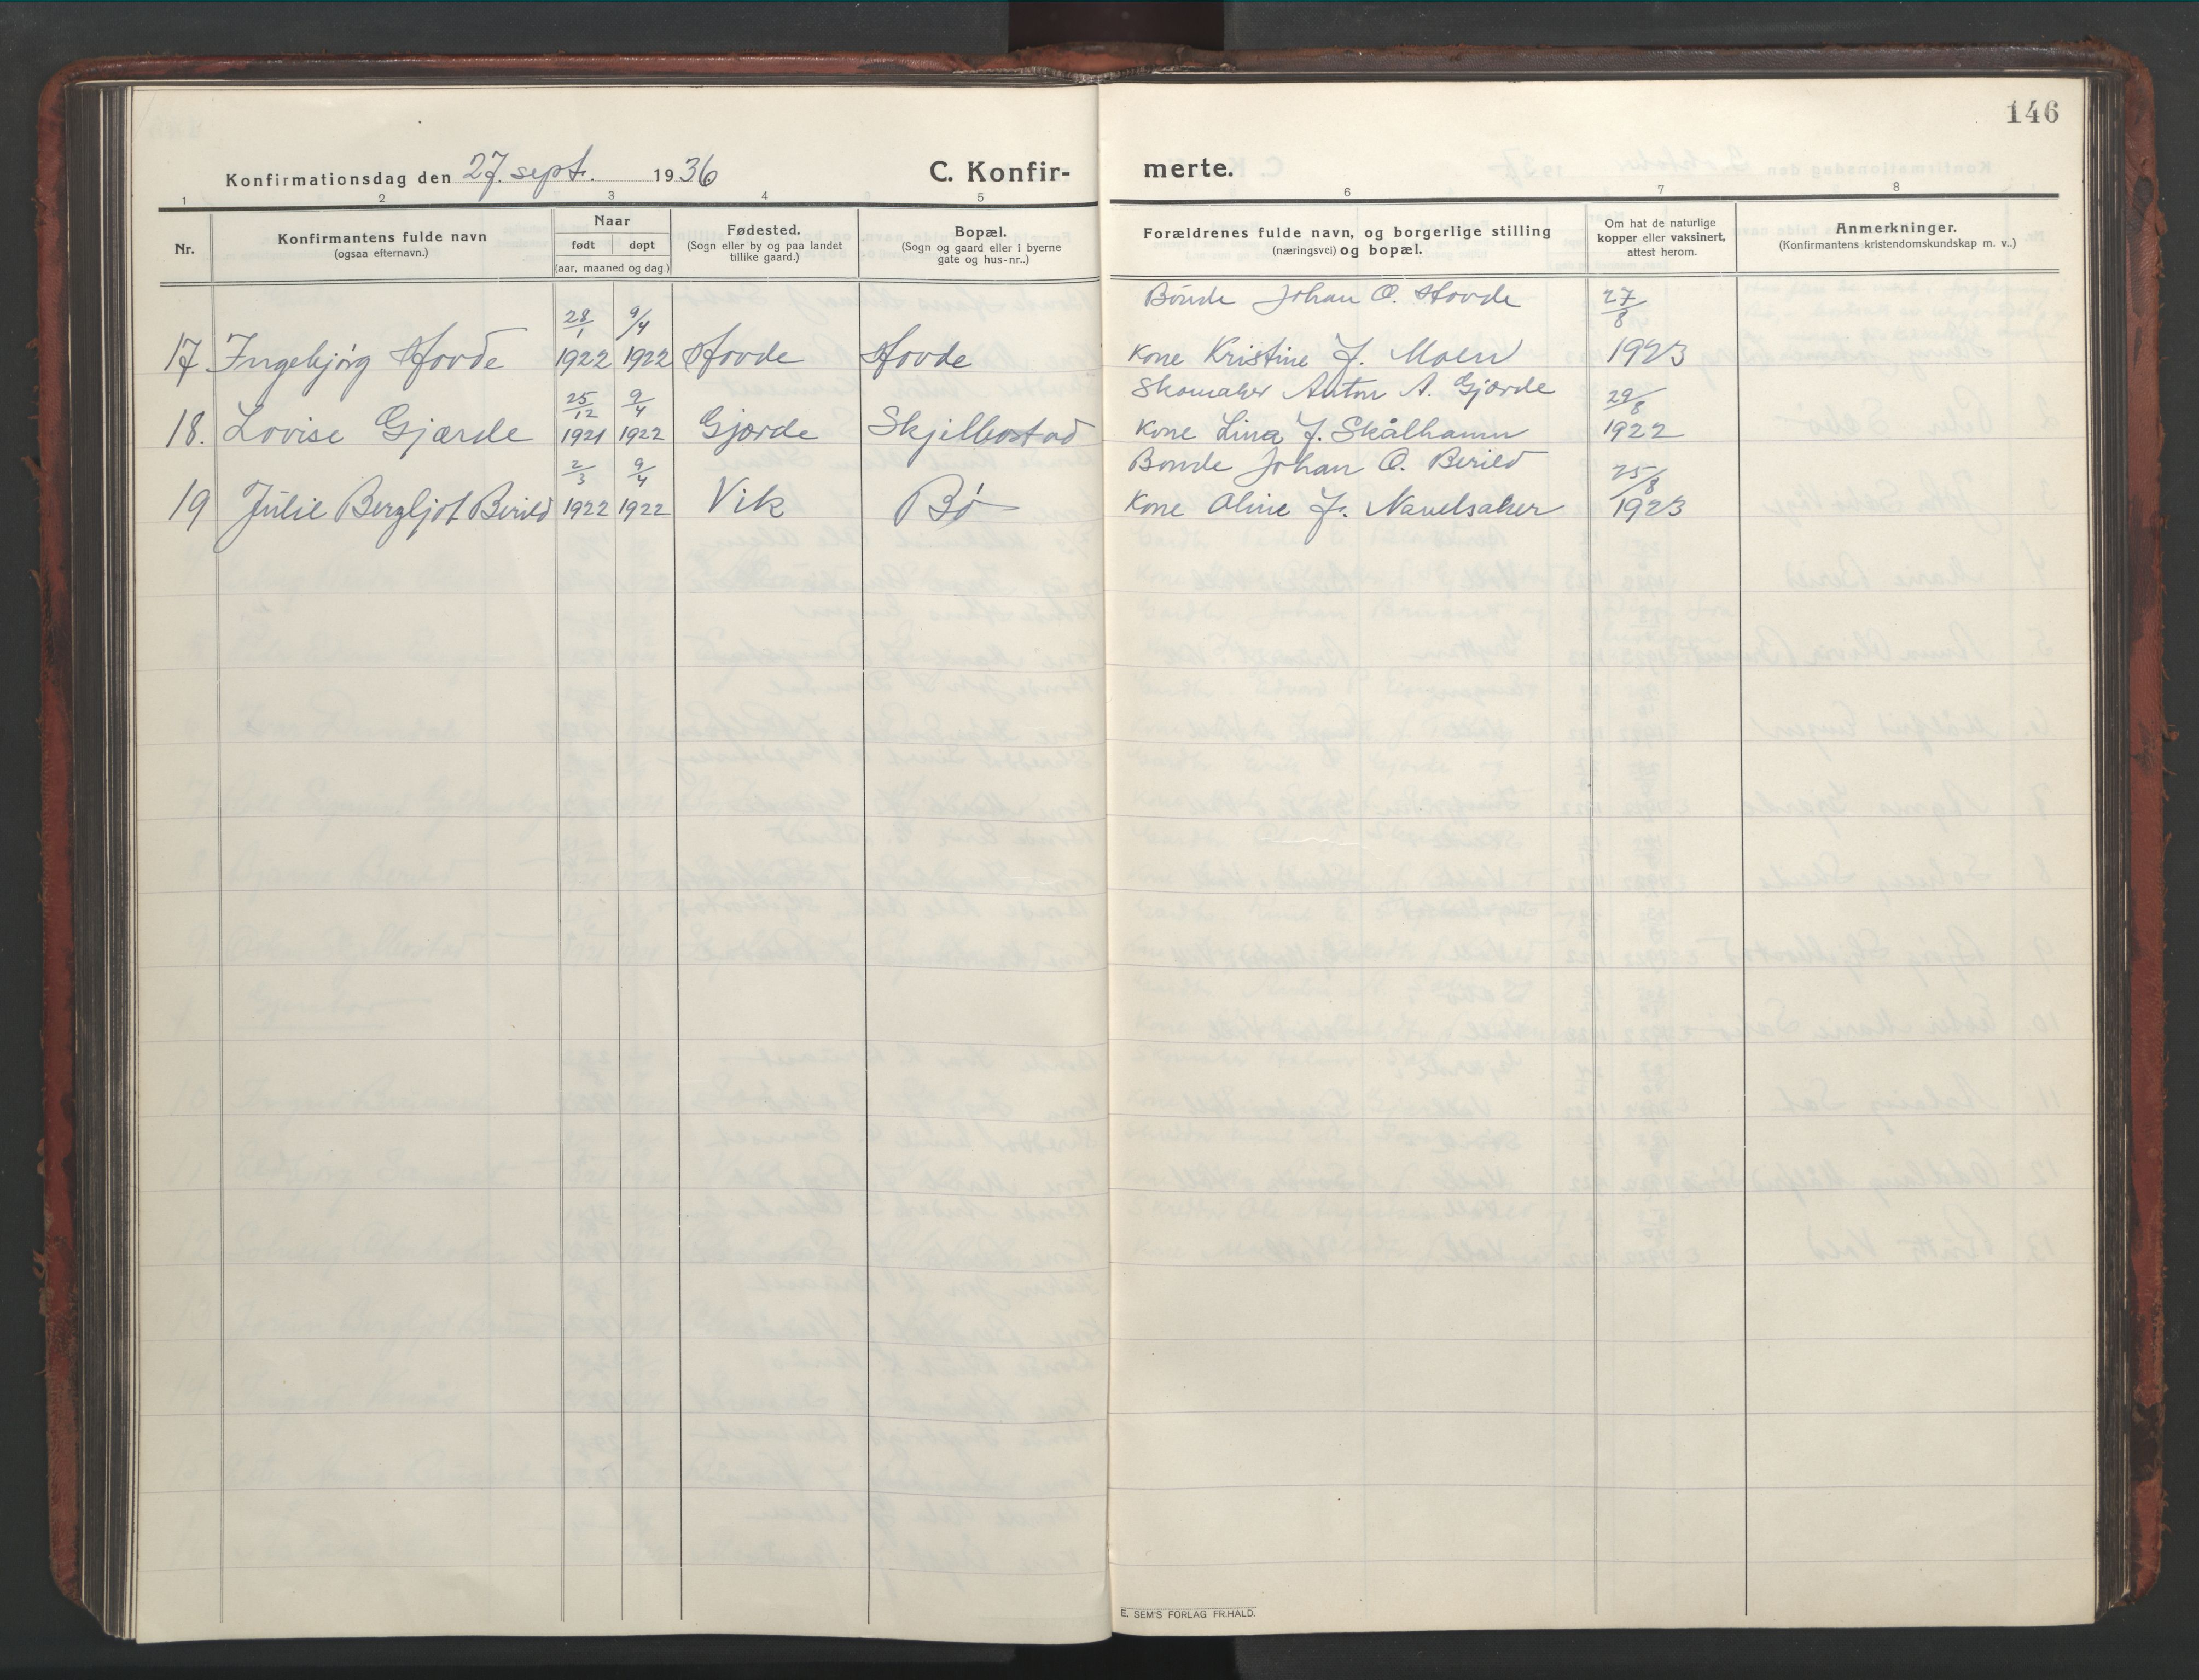 146
Konfirmationsdag den 27. sept. 1936 C. Konfir- merte.
1 2 3 4 5 6 7 8
Nr. Konfirmantens fulde navn (ogsaa efternavn.) Naar født døpt (aar, maaned og dag.) Fødested. (Sogn eller by og paa landet tillike gaard.) Bopæl. (Sogn og gaard eller i byerne gate og hus-nr..) Forældrenes fulde navn, og borgerlige stilling (næringsvei) og bopæl. Om hat de naturlige kopper eller vaksinert, attest herom. Anmerkninger. (Konfirmantens kristendomskundskap m. v..)
Bonde Johan O. Hovde 27/8
28/1 9/4
17 Ingebjørg Hovde 1922 1922 Hovde Hovde Kone Kristine J. Moen 1923
25/12 9/4 Skomaker Anton A. Gjærde 29/8
18. Lovise Gjærde 1921 1922 Gjærde Skjelbostad Kone Lina J. Skålhamn 1922
2/3 9/4 Bonde Johan O. Berild 25/8
19 Julie Bergljot Berild 1922 1922 Vik Bø Kone Oline J. Navelsaker 1923
E. SEM'S FORLAG FR.HALD.